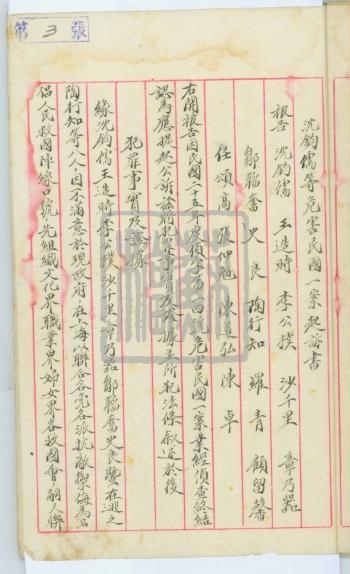 第3張
沈鈞儒等危害民國一案起訴書
被告 沈鈞儒 王造時 李公樸 沙千里 章乃器
鄒韜奮 史良 陶行知 羅青 顧留馨
任頌高 張仲勉 陳道弘 陳卓
右開被告因民國二十五年度偵字第四號危害民國一案業經偵查終結
認為應提起公訴茲將犯罪事實及證據並所犯法條敘述於後
犯罪事實及證據
緣沈鈞儒王造時李公樸沙千里章乃器鄒韜奮史良暨在逃之
陶行知等八人因不滿意於現政府在上海以聯合各黨各派抗敵禦侮為名
倡人民救國陣線口號先組織文化界職業界婦女界各救國會嗣又聯